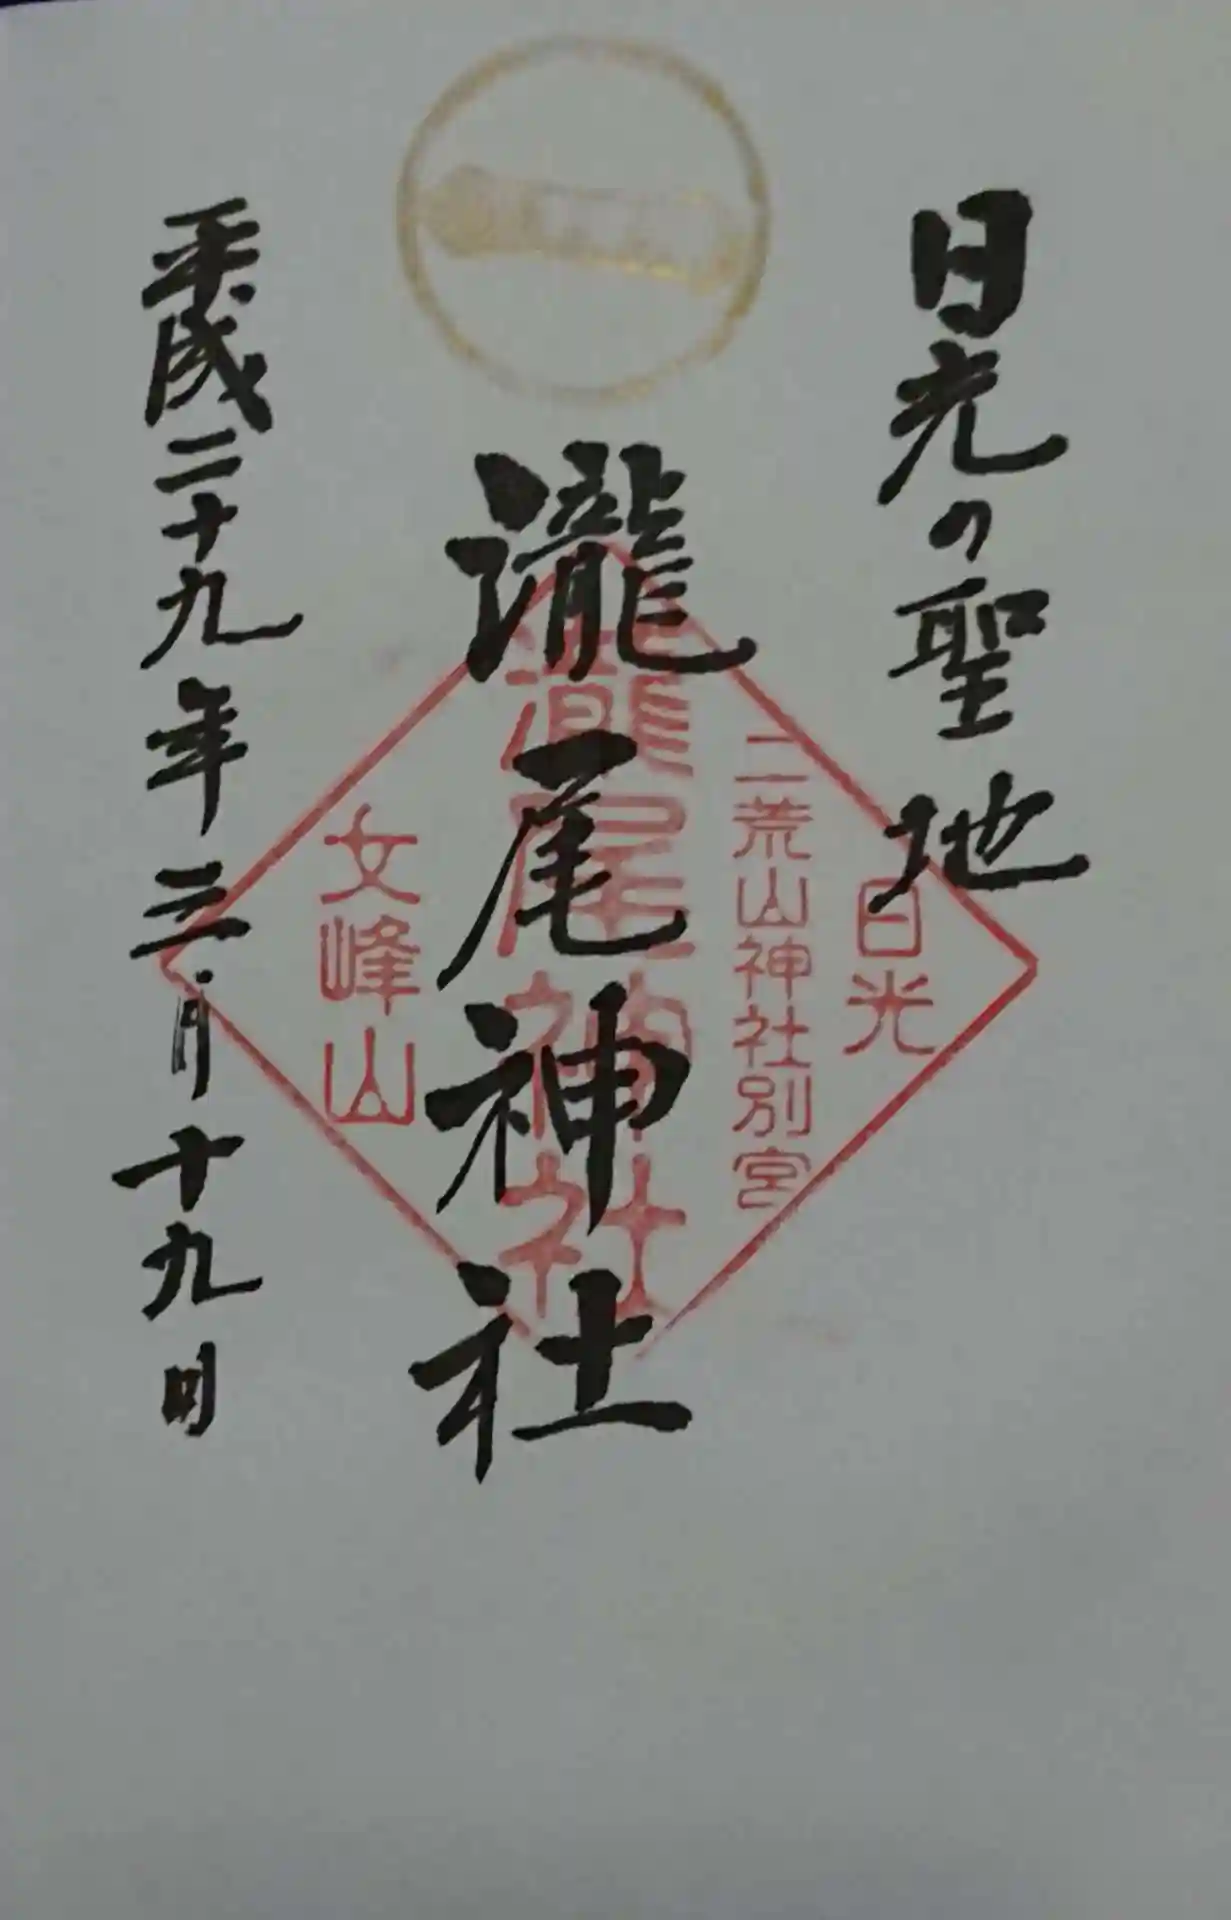 日光の聖地
日光
二荒山神社別宮
瀧尾神社
瀧尾神社
女峰山
平成二十九年三月十九日